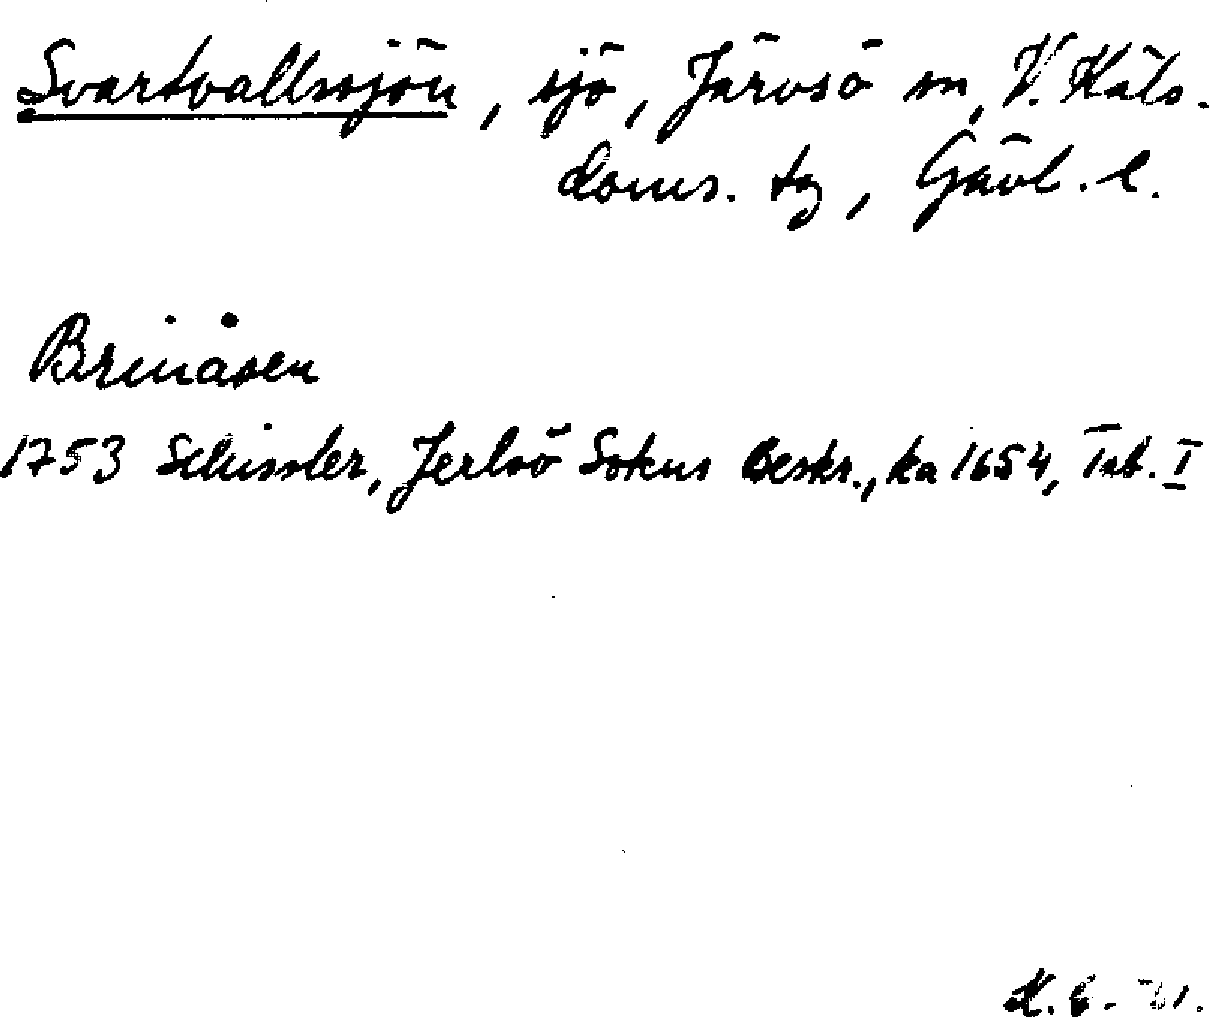 Svartvallssjön, sjö, Järvsö sn, V. Häls.
doms. tg, Gävl. l.
Brinåsen
1753 Schissler, Jerlsö Sokns Beskr., ka 1654, Tab. I